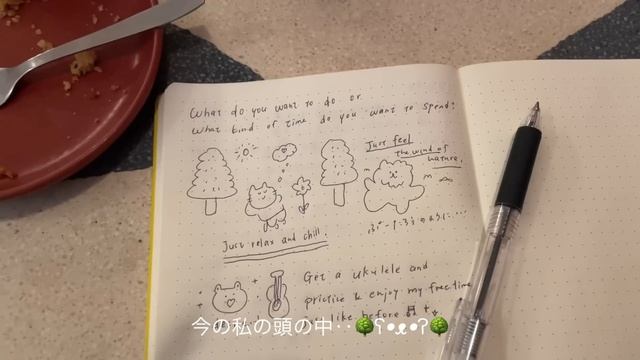 What do you want to do or
What kind of time do you want to spend?
Just feel
the wind of
nature.
Just relax and chill.
Get a ukulele and
prictice & enjoy my free time
like before
今の私の頭の中‥🌳ʕ•ᴥ•ʔ🌳